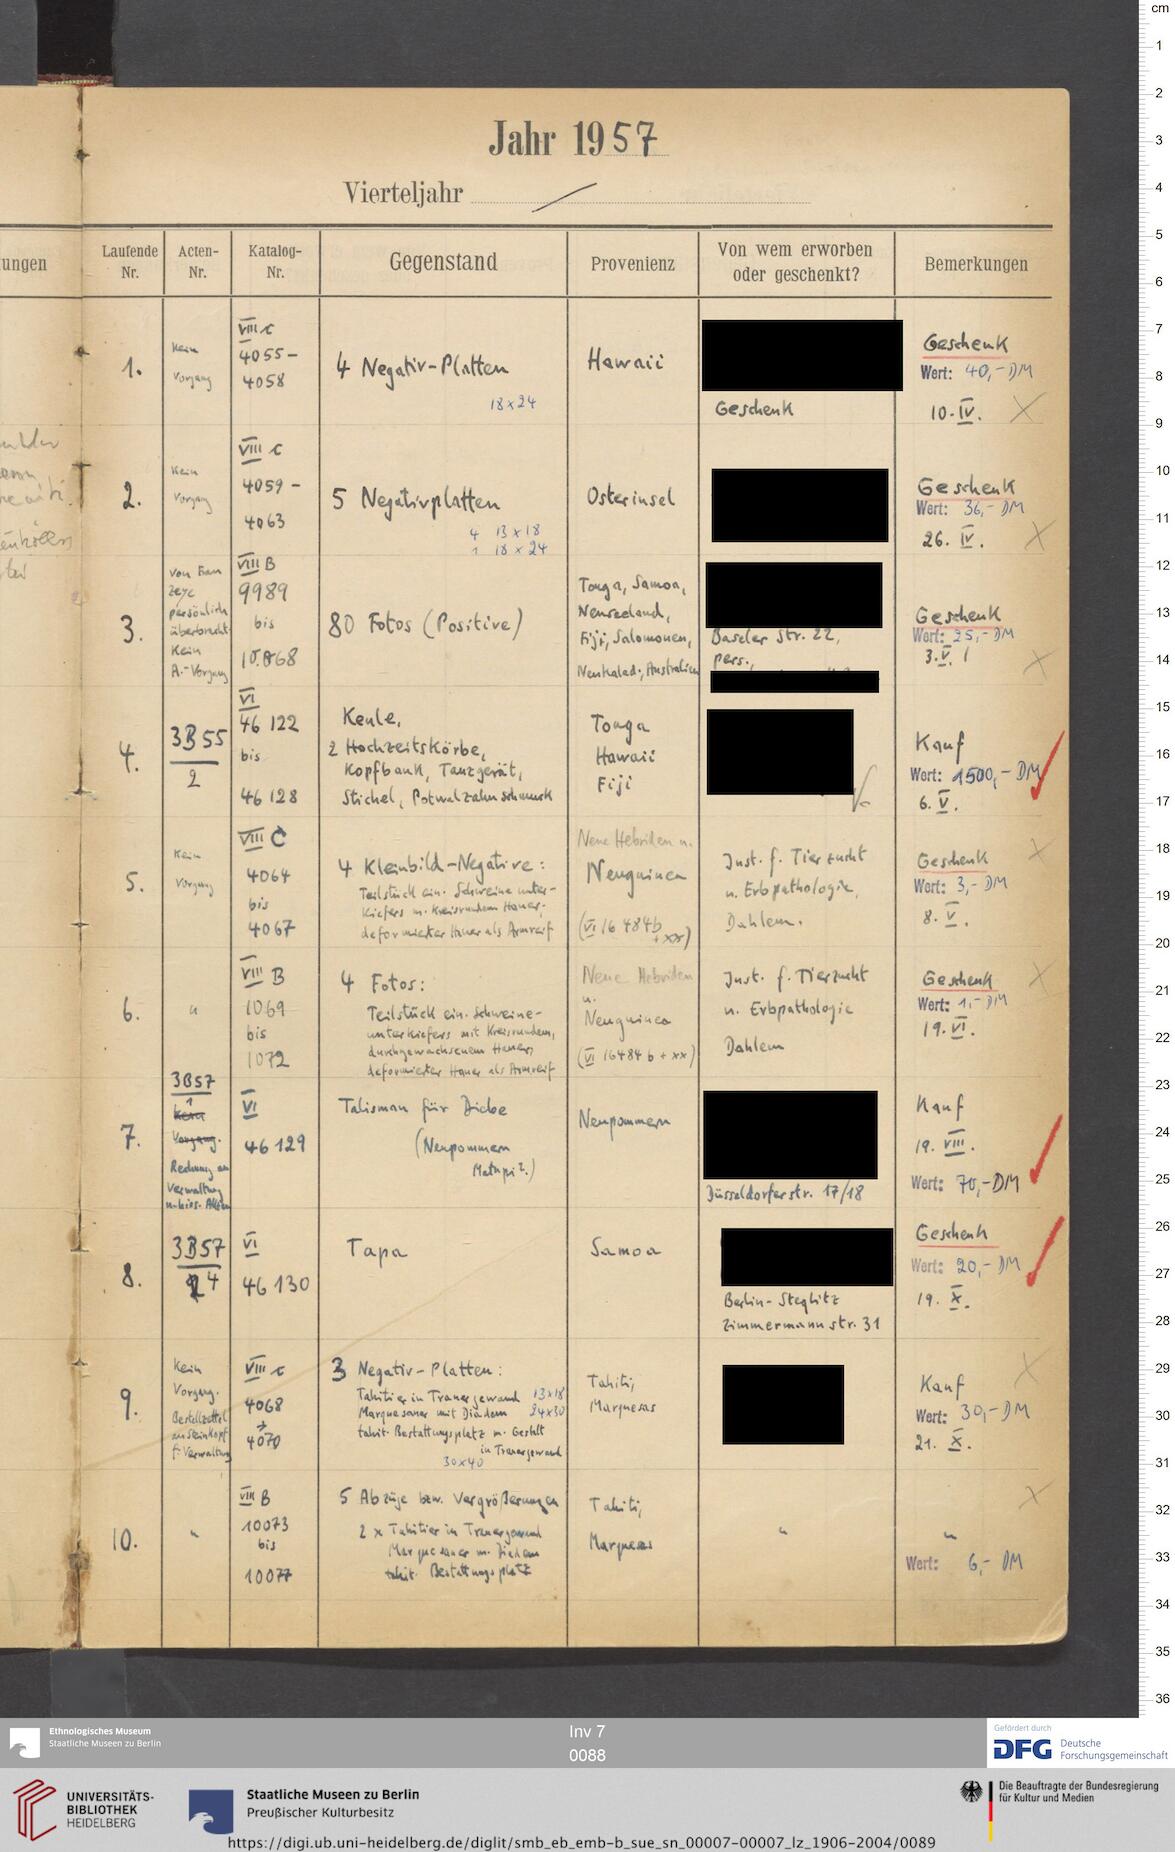 Jahr 1957
Vierteljahr
ungen
Laufende Nr.
Acten-Nr.
Katalog-Nr.
Gegenstand
Provenienz
Von wem erworben oder geschenkt?
Bemerkungen
1.
Kein
Vorgang
VIII c
4055-
4058
4 Negativ-Platten
18x24
Hawaii
Geschenk
Geschenk
Wert: 40,- DM
10. IV.
2.
Kein
Vorgang
VIII c
4059 -
4063
5 Negativplatten
4 13x18
1 18x24
Osterinsel
Geschenk
Wert: 36,- DM
26. IV.
3.
von Frau
persönlich
überbracht.
Kein
A.-Vorgang
VIII B
9989
bis
10068
80 Fotos (Positive)
Tonga, Samoa,
Neuseeland,
Fiji, Salomonen,
Neukaled., Australien
Baseler Str. 22,
pers.,
Geschenk
Wert: 25,- DM
3. V.
4.
3B55
2
VI
46 122
bis
46 128
Keule,
2 Hochzeitskörbe,
Kopfbank, Tanzgerät,
Stichel, Potwalzahnschmuck
Tonga
Hawaii
Fiji
Kauf
Wert: 1500,- DM
6. V.
5.
Kein
Vorgang
VIII C
4064
bis
4067
4 Kleinbild-Negative:
Teilstück ein. Schweineunter-
kiefers m. kreisrundem Hauer,
deformierter Hauer als Armreif
Neue Hebriden u.
Neuguinea
(VI 16484b
+xx)
Inst. f. Tierzucht
u. Erbpathologie,
Dahlem.
Geschenk
Wert: 3,- DM
8. V.
6.
"
VIII B
1069
bis
1072
4 Fotos:
Teilstück ein. Schweine-
unterkiefers mit kreisrundem,
durchgewachsenem Hauer,
deformierter Hauer als Armreif
Neue Hebriden
u.
Neuguinea
(VI 16484 b + xx)
Inst. f. Tierzucht
u. Erbpathologie
Dahlem
Geschenk
Wert: 1,- DM
19. VI.
7.
3B57
1
Kein
Vorgang.
Rechnung an
Verwaltung
VI
46 129
Talisman für Diebe
(Neupommern
Matupi?)
Neupommern
Düsseldorferstr. 17/18
Kauf
19. VIII.
Wert: 70,- DM
8.
3B57
4
VI
46 130
Tapa
Samoa
Berlin-Steglitz
Zimmermannstr. 31
Geschenk
Wert: 20,- DM
19. X.
9.
Kein
Vorgang.
Bestellzettel
f. Verwaltung
VIII c
4068
4070
3 Negativ-Platten:
Tahitier in Trauergewand 13x18
Marquesaner mit Diadem 24x30
tahit. Bestattungsplatz m. Gestalt
in Trauergewand
30x40
Tahiti,
Marquesas
Kauf
Wert: 30,- DM
21. X.
10.
"
VIII B
10073
bis
10077
5 Abzüge bzw. Vergrößerungen
2 x Tahitier in Trauergewand
Marquesaner m. Diadem
tahit. Bestattungsplatz
Tahiti,
Marquesas
"
"
Wert: 6,- DM
cm
1
2
3
4
5
6
7
8
9
10
11
12
13
14
15
16
17
18
19
20
21
22
23
24
25
26
27
28
29
30
31
32
33
34
35
36
Ethnologisches Museum
Staatliche Museen zu Berlin
Inv 7
0088
Gefördert durch
DFG Deutsche
Forschungsgemeinschaft
UNIVERSITÄTS-
BIBLIOTHEK
HEIDELBERG
Staatliche Museen zu Berlin
Preußischer Kulturbesitz
Die Beauftragte der Bundesregierung
für Kultur und Medien
https://digi.ub.uni-heidelberg.de/diglit/smb_eb_emb-b_sue_sn_00007-00007_lz_1906-2004/0089